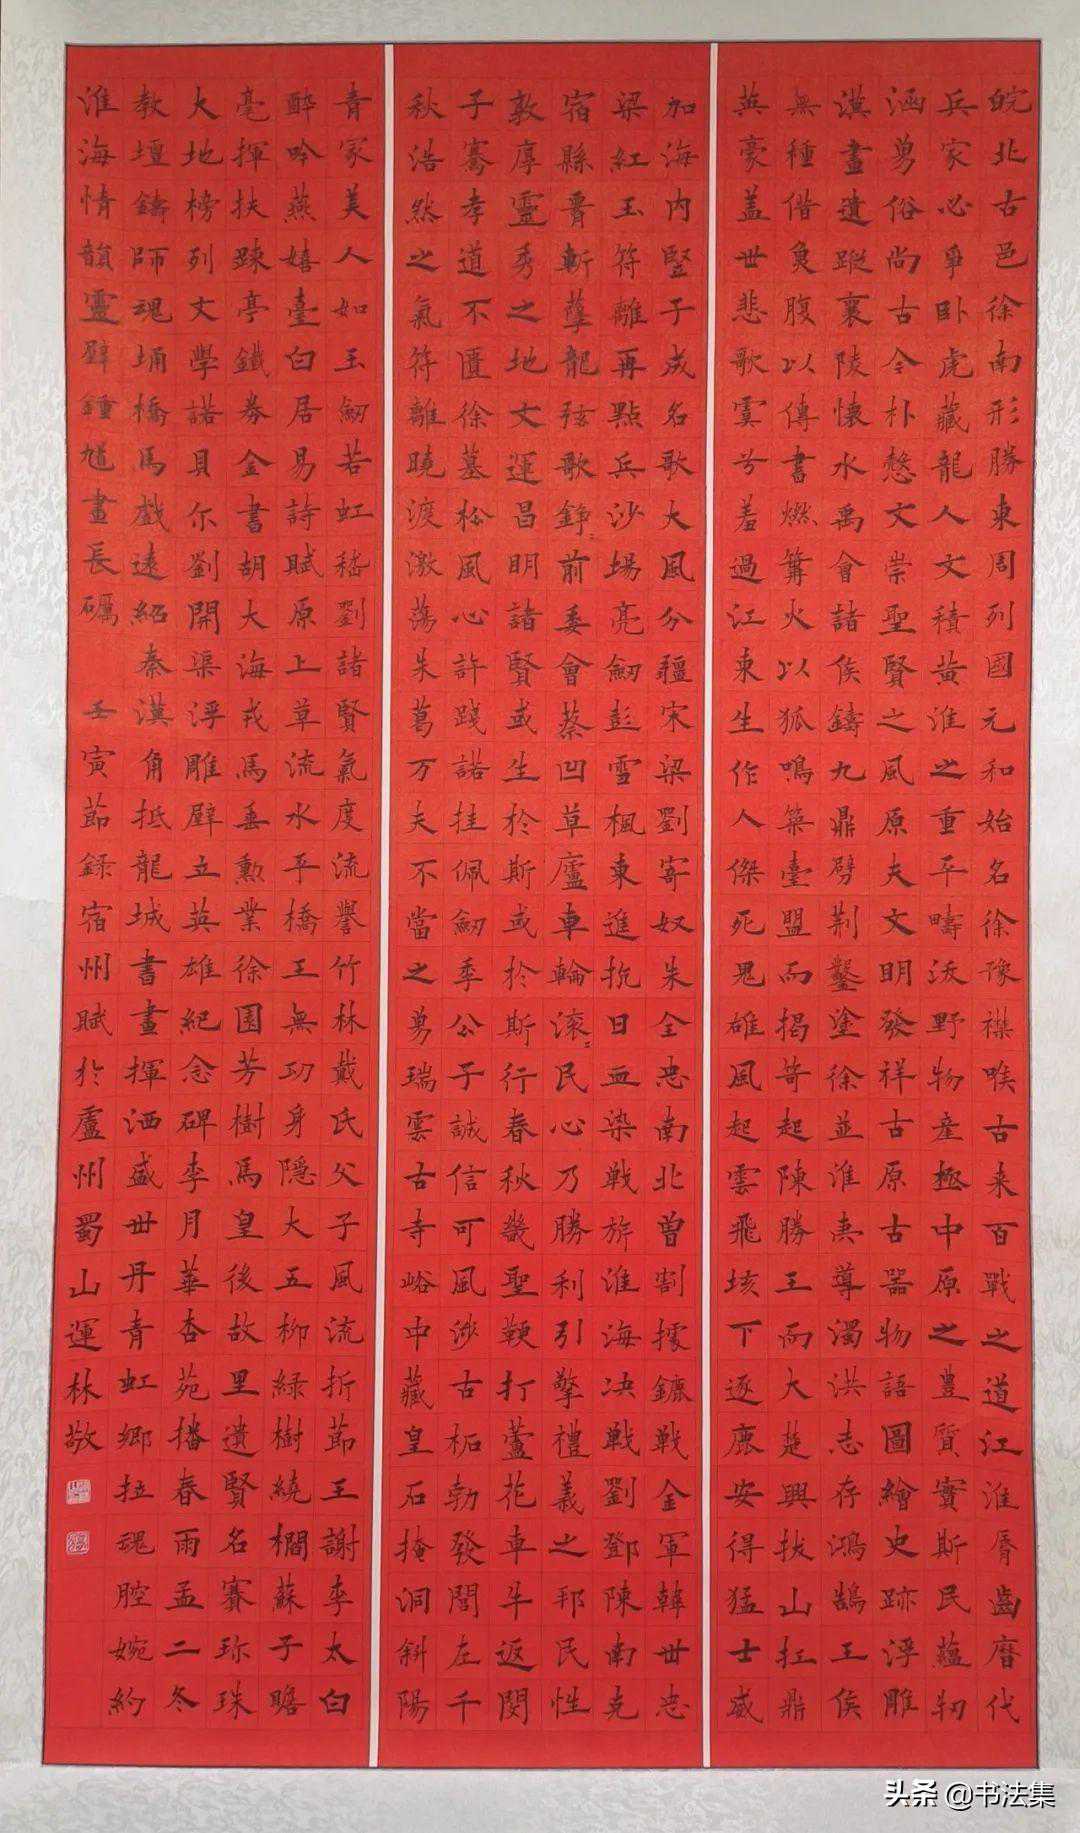 皖北古邑徐南形勝東周列國元和始名徐豫襟喉古来百戰之道江淮脣齒曆代
兵家必爭卧虎藏龍人文積黄淮之重平疇沃野物産極中原之豊質實斯民蘊韧
涵勇俗尚古今朴慤文崇聖賢之風原夫文明發祥古原古器物語圖繪史跡浮雕
漢畫遺蹤襄陵懷水禹會諸侯鑄九鼎劈荆鑿塗徐並淮夷尊濁洪志存鴻鵠王侯
無種偕魚腹以傳書燃篝火以狐鳴築臺盟而揭竒起陳勝王而大楚興拔山扛鼎
英豪盖世悲歌虞兮羞過江東生作人傑死鬼雄風起雲飛垓下逐鹿安得猛士威
加海内竪子成名歌大風分疆宋梁劉寄奴朱全忠南北曽割據鏖戰金軍韓世忠
梁紅玉符離再點兵沙場亮劍彭雪楓東進抗日血染戰旂淮海决戰劉鄧陳南克
宿縣晋斬孽龍弦歌錚前委會蔡凹草廬車輪滚民心乃勝利引擎禮義之邦民性
敦厚靈秀之地文運昌明諸賢或生於斯或於斯行春秋幾聖鞭打蘆花車牛返閔
子騫孝道不匱徐墓松風心許踐諾挂佩劍季公子誠信可風涉古柘勃發閭左千
秋浩然之氣符離曉渡激荡朱葛万夫不當之勇瑞雲古寺峪中藏皇石掩洞斜陽
青冢美人如玉劍若虹嵇劉諸賢氣度流譽竹林戴氏父子風流折節王謝李太白
醉吟燕嬉臺白居易詩賦原上草流水平橋王無功身隱大五柳緑樹繞櫩蘇子瞻
毫揮扶踈亭鐵券金書胡大海戎馬垂勲業徐園芳樹馬皇後故里遺賢名賽珎珠
大地榜列文學諾貝尔劉開渠浮雕壁立英雄紀念碑李月華杏苑播春雨孟二冬
教壇鑄師魂埇橋馬戲遠紹秦漢角抵龍城書畫揮洒盛世丹青虹鄉拉魂腔婉約
淮海情韻靈壁鍾馗畫長礪 壬寅節録宿州賦於廬州蜀山運林敬
头条 @书法集